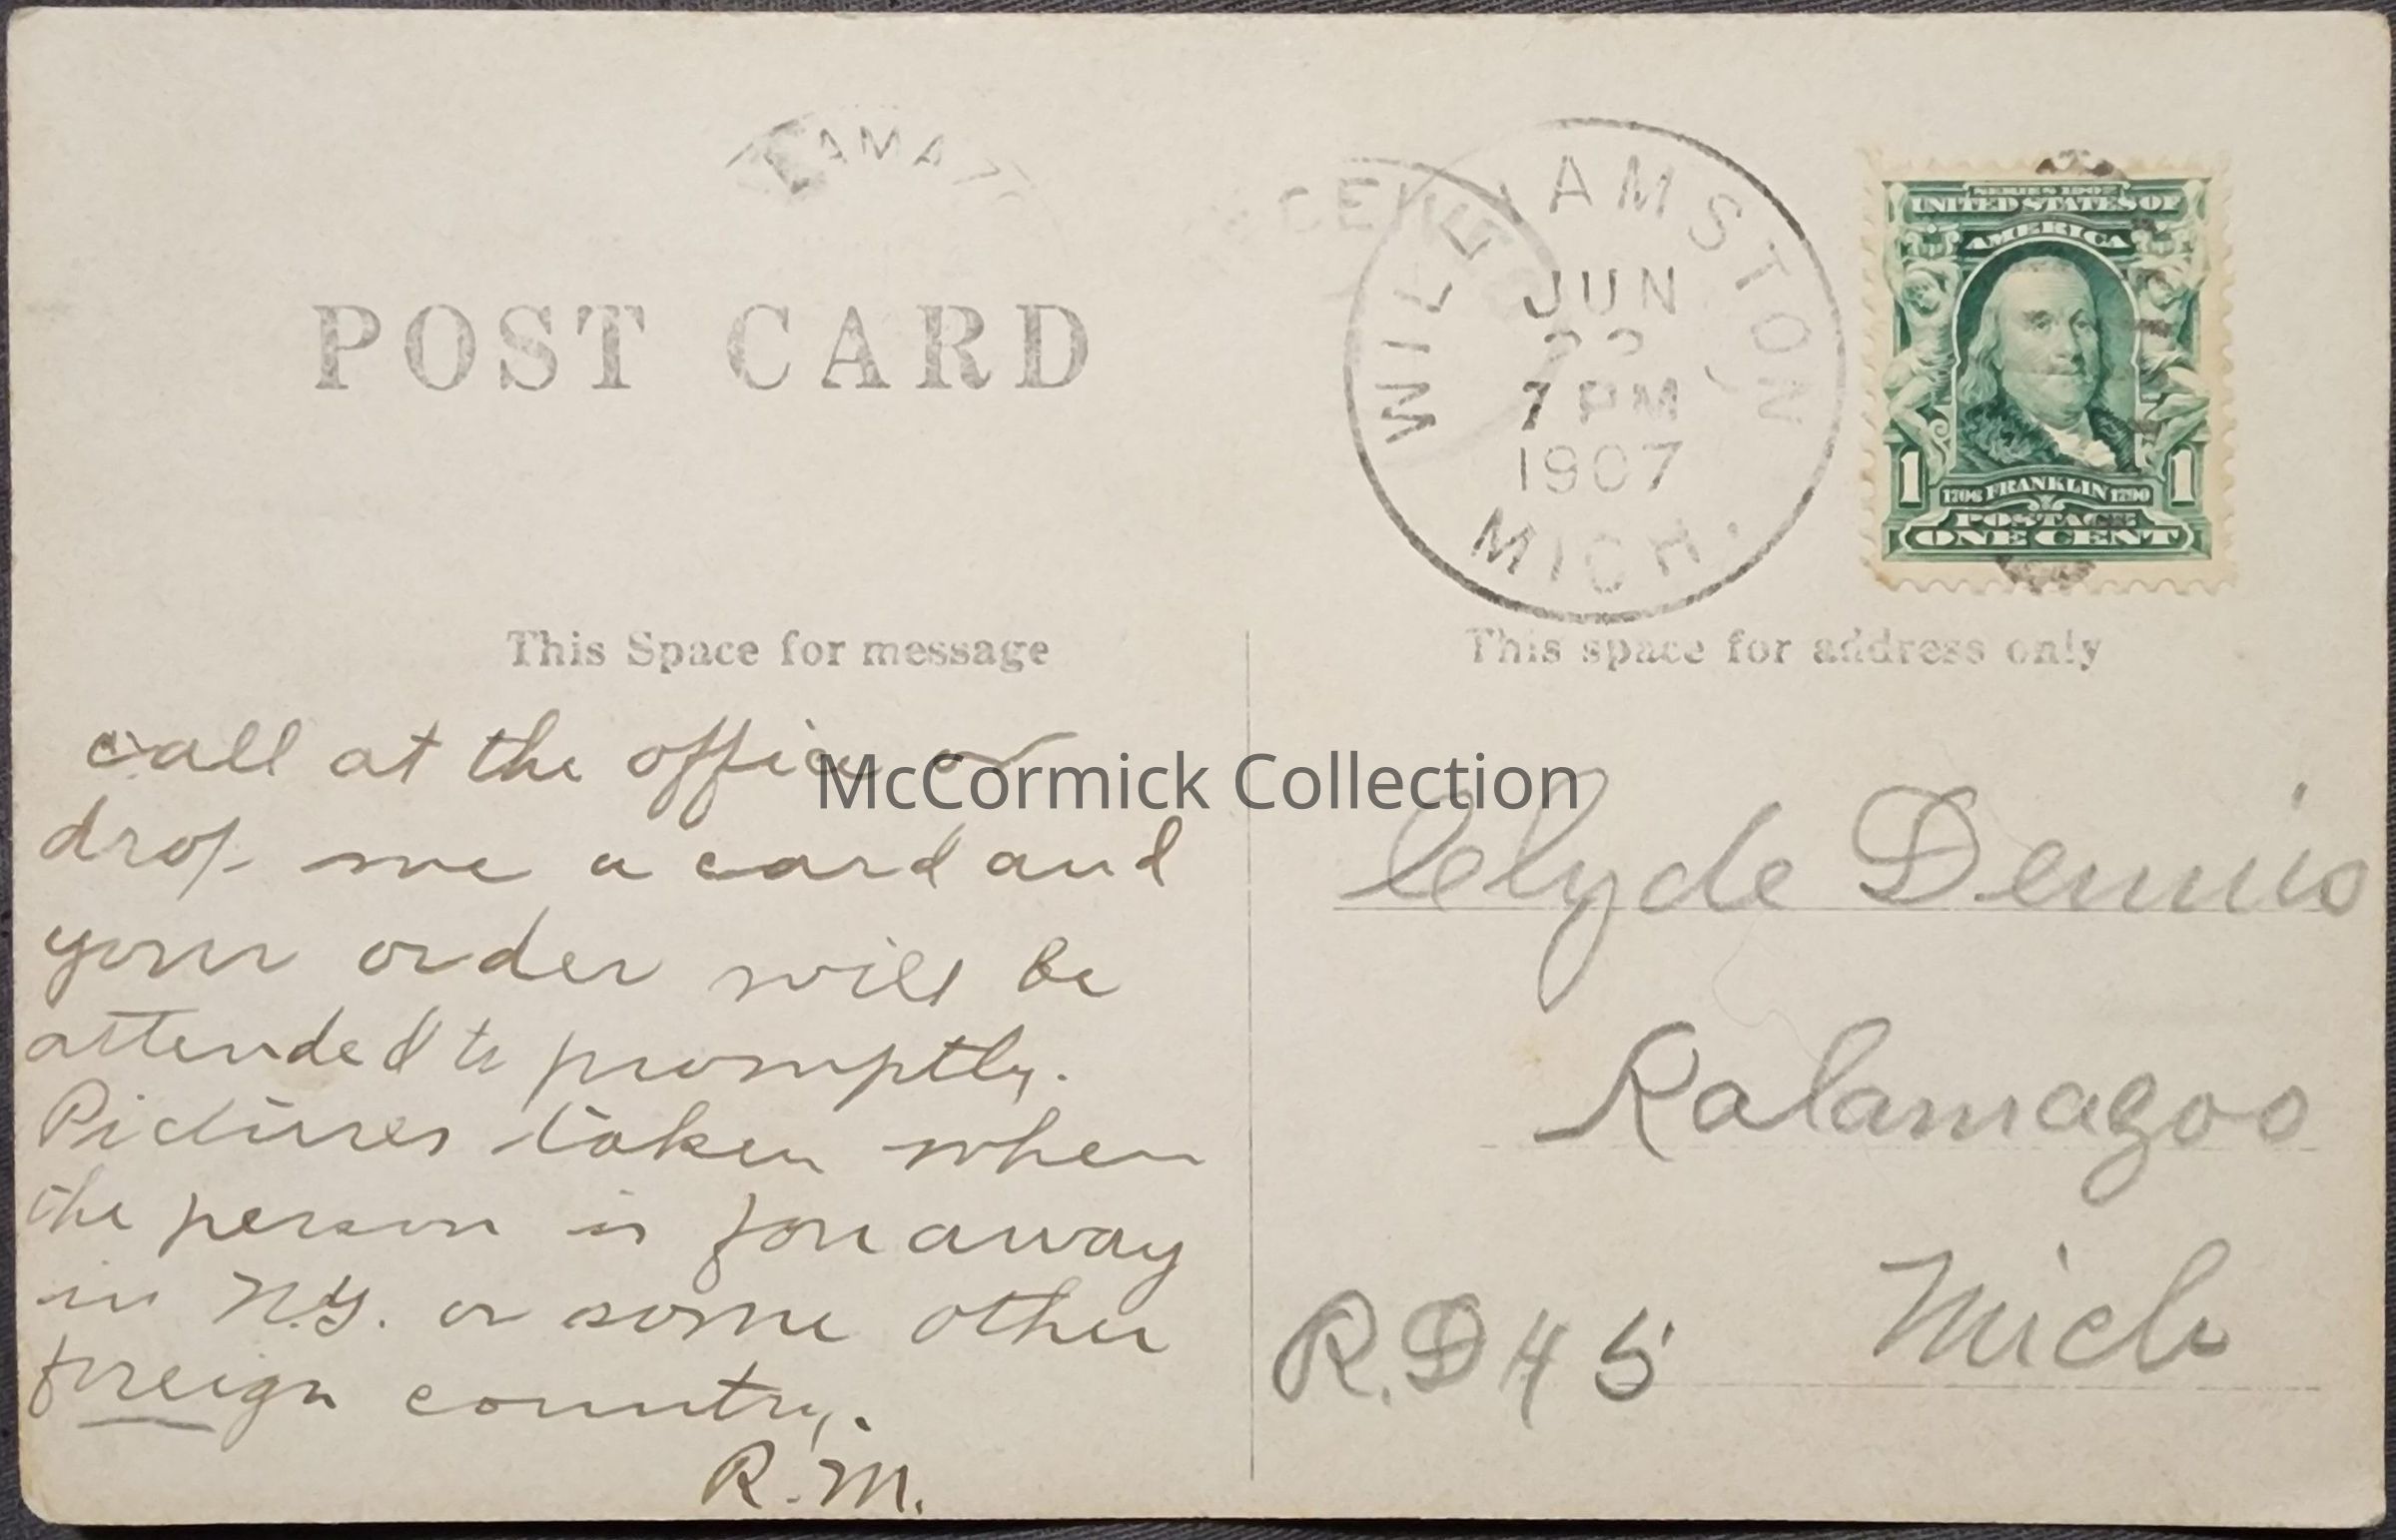 KAMAZO
CEIVE
WILLIAMSTON
JUN
22
7 PM
1907
MICH.
SERIES 1902
UNITED STATES OF
AMERICA
1 1706 FRANKLIN 1790 1
POSTAGE
ONE CENT
POST CARD
This Space for message
This space for address only
call at the office or
drop me a card and
your order will be
attended to promptly.
Pictures taken when
the person is far away
in N.Y. or some other
foreign country.
R.M.
McCormick Collection
Clyde Dennis
Kalamazoo
Mich
R.D 4 5